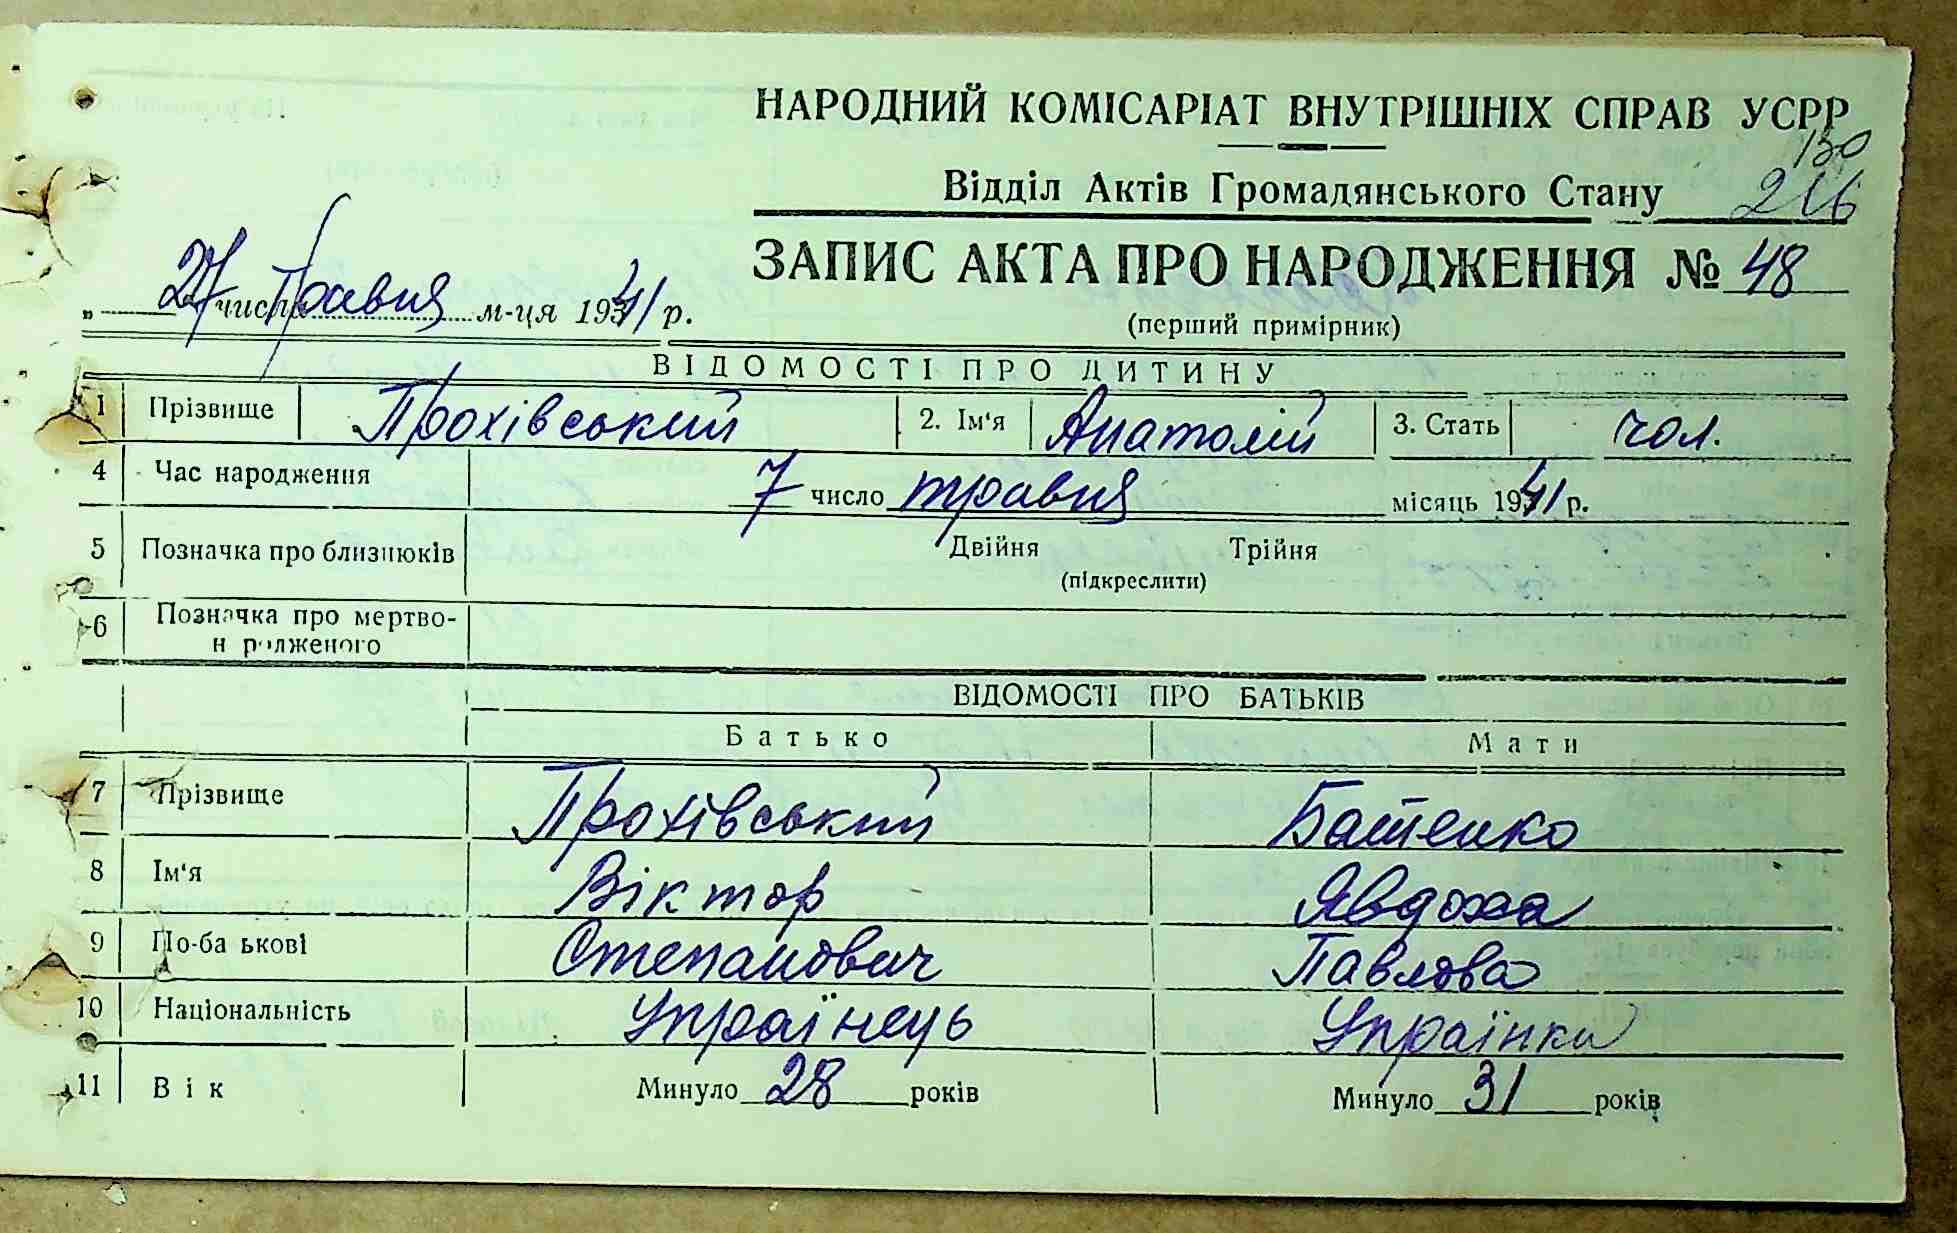 НАРОДНИЙ КОМІСАРІАТ ВНУТРІШНІХ СПРАВ УСРР
130
Відділ Актів Громадянського Стану 216
ЗАПИС АКТА ПРО НАРОДЖЕННЯ № 48
„ 27 числа Травня м-ця 1941 р.
(перший примірник)
ВІДОМОСТІ ПРО ДИТИНУ
1 Прізвище Прохівський 2. Ім‘я Анатолій 3. Стать чол.
4 Час народження 7 число травня місяць 1941 р.
5 Позначка про близнюків Двійня Трійня
(підкреслити)
6 Позначка про мертво-
н родженого
ВІДОМОСТІ ПРО БАТЬКІВ
Батько Мати
7 Прізвище Прохівський Батенко
8 Ім‘я Віктор Явдоха
9 По-ба ькові Степанович Павлова
10 Національність Українець Українка
11 Вік Минуло 28 років Минуло 31 років